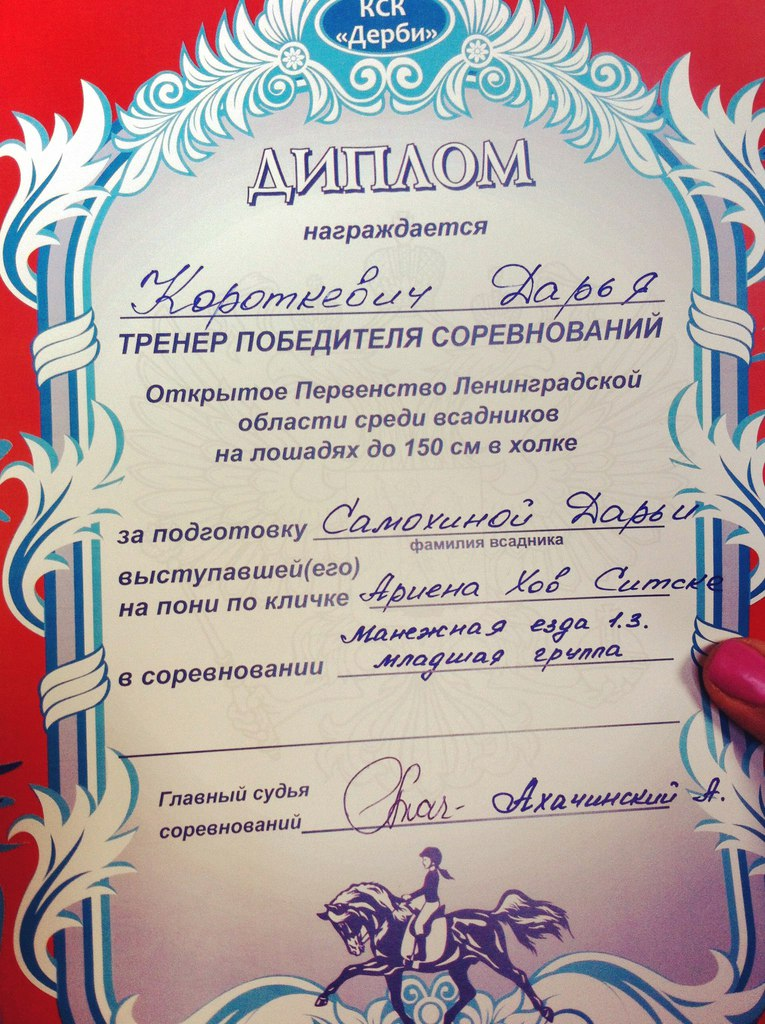 КСК
«Дерби»
ДИПЛОМ
награждается
Короткевич Дарья
ТРЕНЕР ПОБЕДИТЕЛЯ СОРЕВНОВАНИЙ
Открытое Первенство Ленинградской
области среди всадников
на лошадях до 150 см в холке
за подготовку Самохиной Дарьи
фамилия всадника
выступавшей(его)
на пони по кличке Ариена Хов Ситске
Манежная езда 1.3.
в соревновании младшая группа
Главный судья
соревнований Ахачинский А.